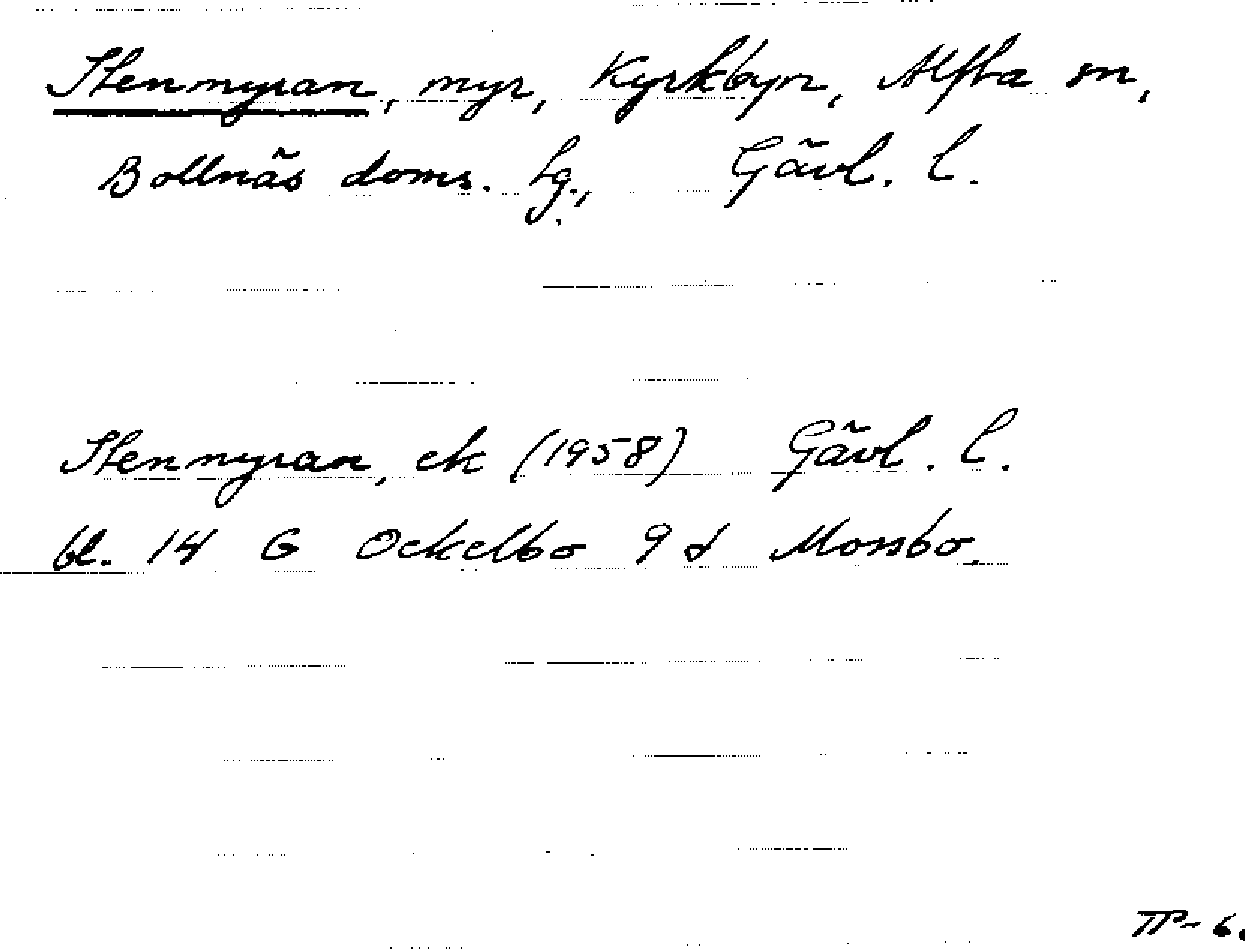 Stenmyran, myr, Kyrkbyn, Alfta sn,
Bollnäs doms. lg., Gävl. l.
Stenmyran, ek (1958) Gävl. l.
bl. 14 G Ockelbo 9 d Mossbo.